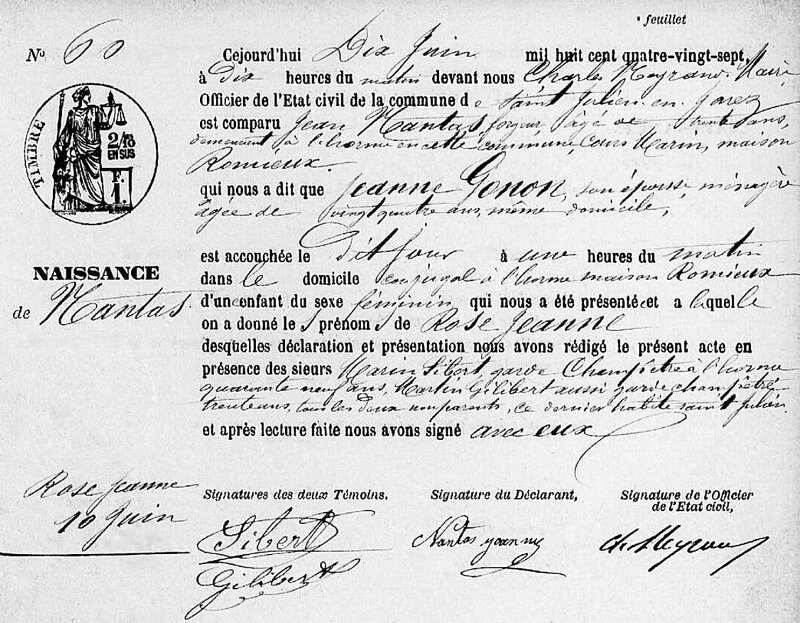 feuillet
No 60
Cejourd'hui Dix Juin mil huit cent quatre-vingt-sept,
à Dix heures du matin devant nous Charles Neyrand, Maire
Officier de l'Etat civil de la commune de Saint Julien en Jarez
est comparu Jean Nantas, forgeur, âgé de trente ans,
demeurant à l'horme en cette commune, Cours Marin, maison
Romieux.
qui nous a dit que Jeanne Gonon, son épouse, ménagère
âgée de vingt quatre ans, même domicile,
est accouchée le dit jour à une heures du matin
dans le domicile conjugal à l'horme maison Romieux
d'un enfant du sexe féminin qui nous a été présenté et a laquelle
on a donné les prénoms de Rose Jeanne
desquelles déclaration et présentation nous avons rédigé le présent acte en
présence des sieurs Marin Sibert, garde Champêtre à l'horme
quarante neuf ans, Martin Gilibert aussi garde champêtre
trente ans, tous les deux non parents, ce dernier habite saint Julien.
et après lecture faite nous avons signé avec eux
TIMBRE
2/10
EN SUS
F.
1.
NAISSANCE
de Nantas.
Rose Jeanne
10 Juin
Signatures des deux Témoins.
Sibert
Gilibert
Signature du Déclarant,
Nantas Joanny
Signature de l'Officier
de l'Etat civil,
ch. Neyrand